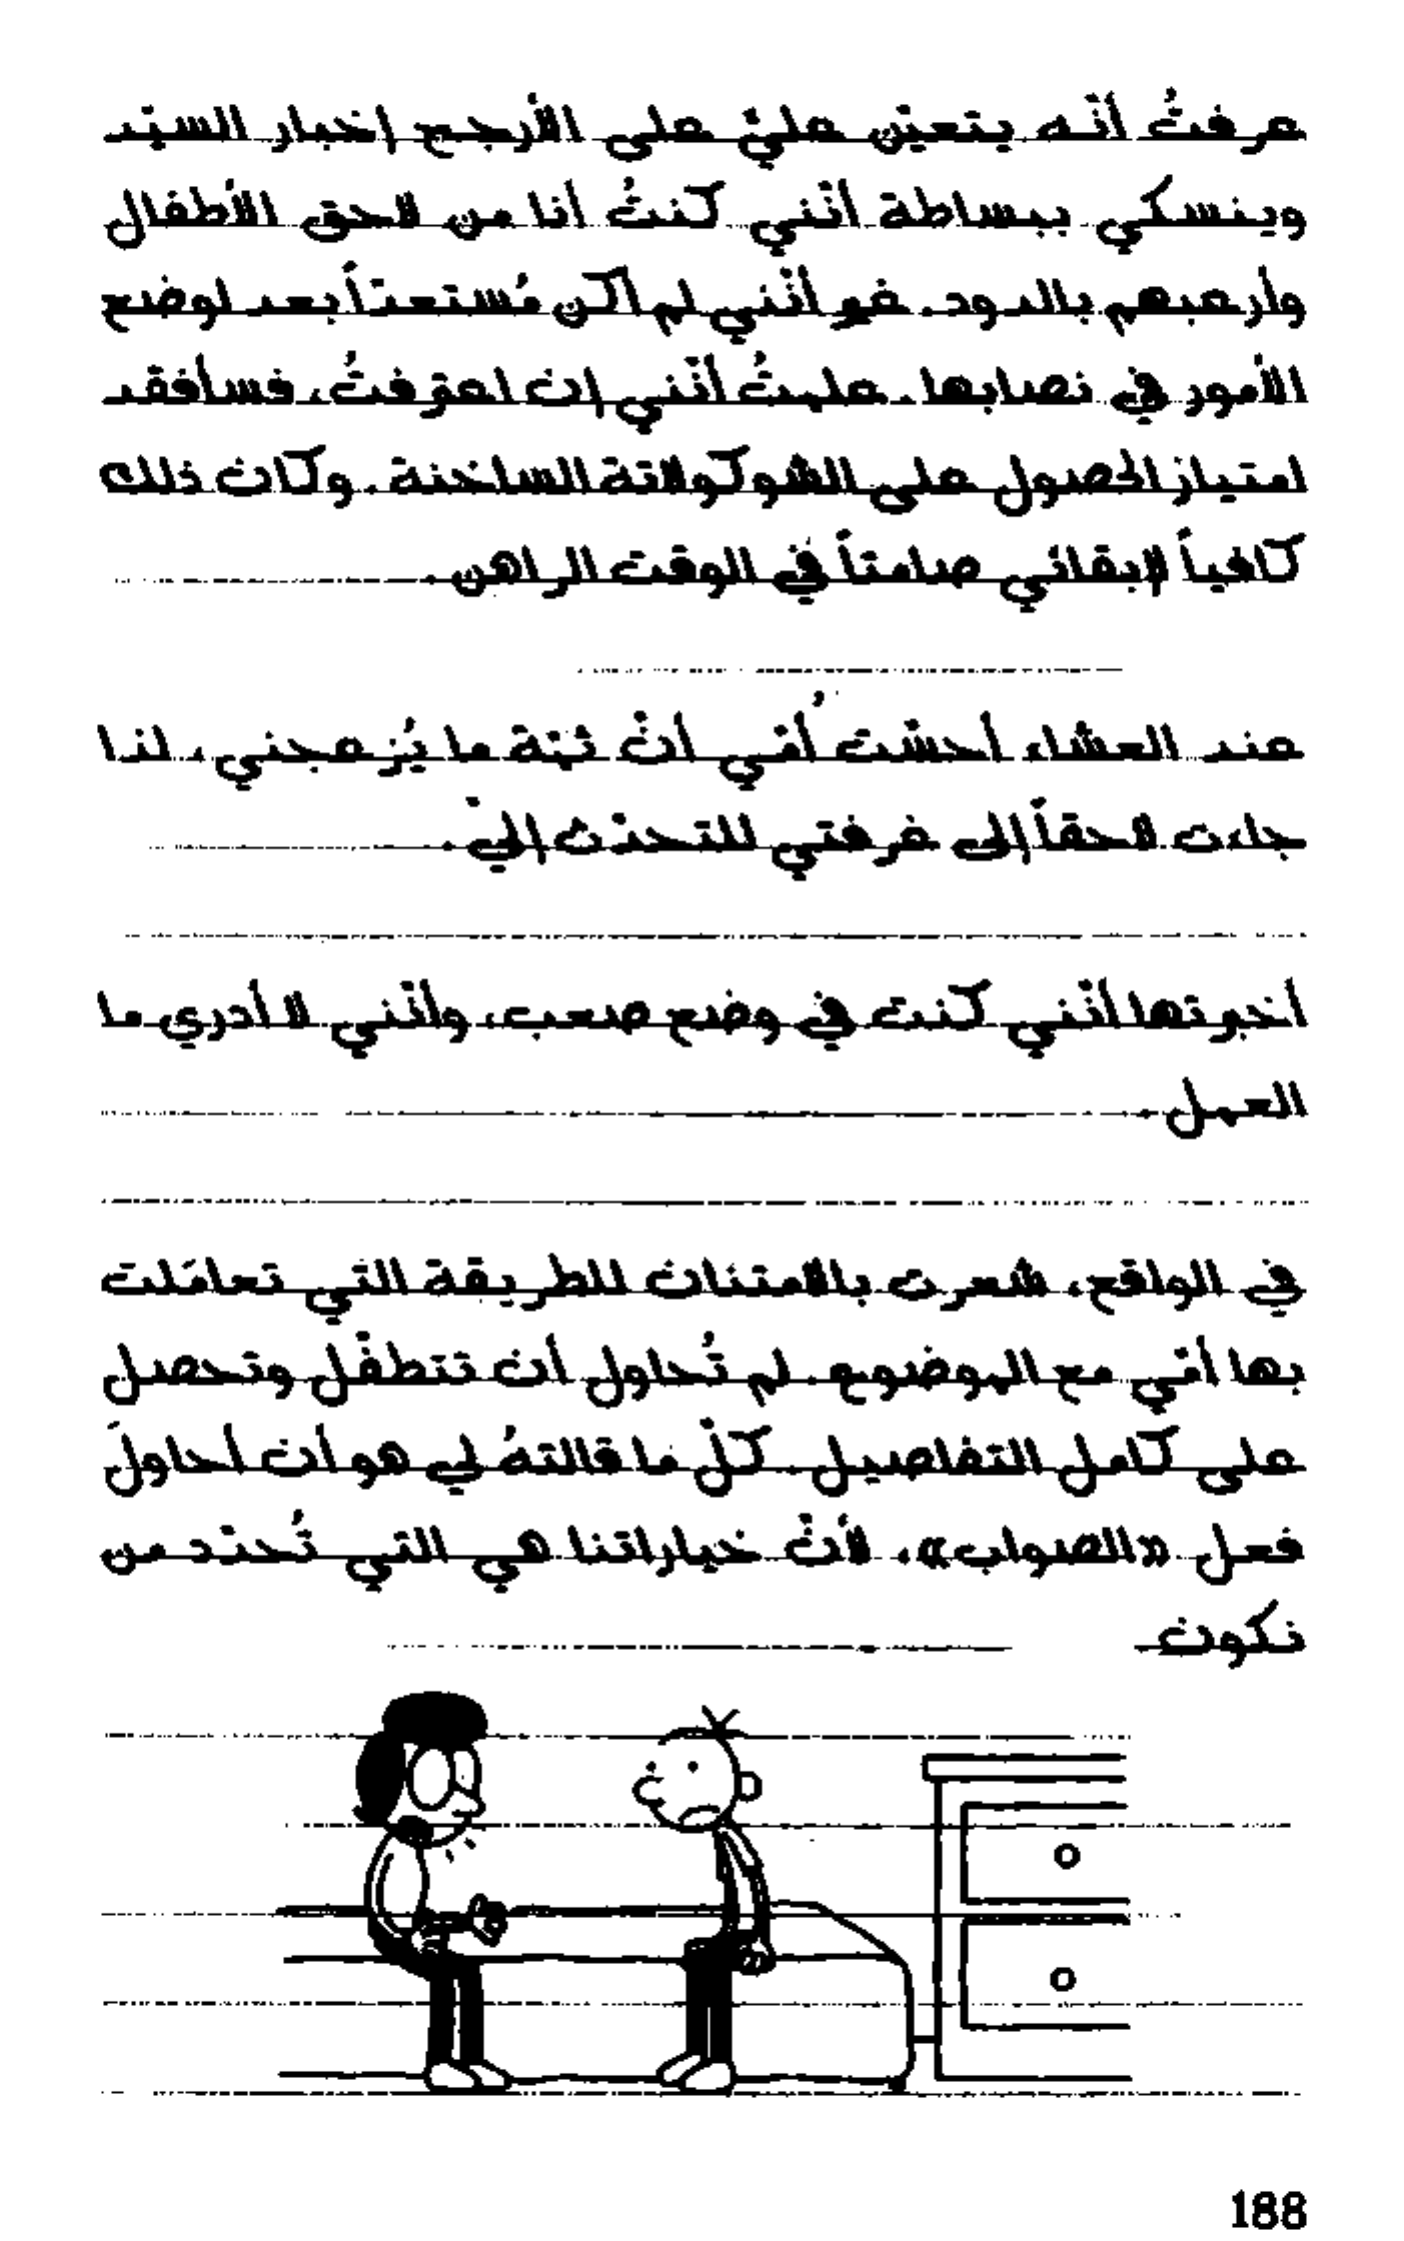 عرفتُ أنّه يتعيّن عليّ على الأرجح إخبار السيّد
وينسكي ببساطة أنّني كنتُ أنا من لاحق الأطفال
وأرعبهم بالدود. غير أنّني لم أكن مُستعدّاً بعد لوضع
الأمور في نصابها. علمتُ أنّني إن اعترفتُ، فسأفقد
امتياز الحصول على الشوكولاتة الساخنة. وكان ذلك
كافياً لإبقائي صامتاً في الوقت الراهن.
عند العشاء أحسّت أُمّي أنّ ثمّة ما يُزعجني، لذا
جاءت لاحقاً إلى غرفتي للتحدّث إليّ.
أخبرتها أنّني كنت في وضع صعب، وأنّني لا أدري ما
العمل.
في الواقع، شعرت بالامتنان للطريقة التي تعامَلت
بها أمّي مع الموضوع. لم تُحاول أن تتطفّل وتحصل
على كامل التفاصيل. كلّ ما قالتهُ لي هو أن أحاولَ
فعل «الصواب»، لأنّ خياراتنا هي التي تُحدّد من
نكون
188